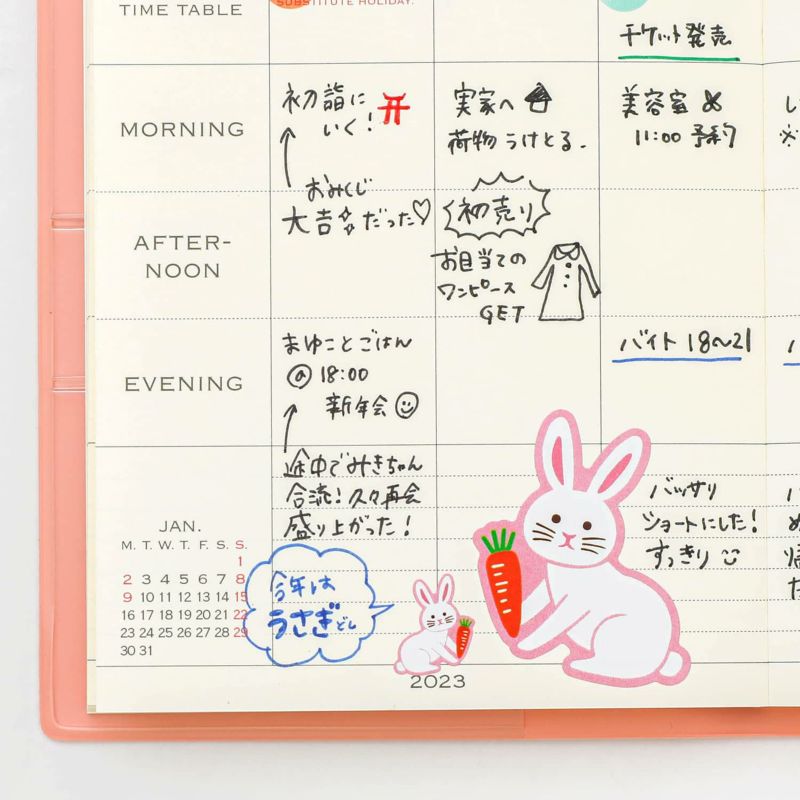 TIME TABLE
SUBSTITUTE HOLIDAY.
チケット発売
MORNING
初詣に
いく!
おみくじ
大吉だった♡
実家へ
荷物うけとる.
美容室
11:00 予約
AFTER-
NOON
初売り
お目当ての
ワンピース
GET
EVENING
まゆことごはん
@ 18:00
新年会
途中でみきちゃん
合流!久々再会
盛り上がった!
バイト 18〜21
バッサリ
ショートにした!
すっきり
JAN.
M. T. W. T. F. S. S.
1
2 3 4 5 6 7 8
9 10 11 12 13 14 15
16 17 18 19 20 21 22
23 24 25 26 27 28 29
30 31
今年は
うさぎどし
2023